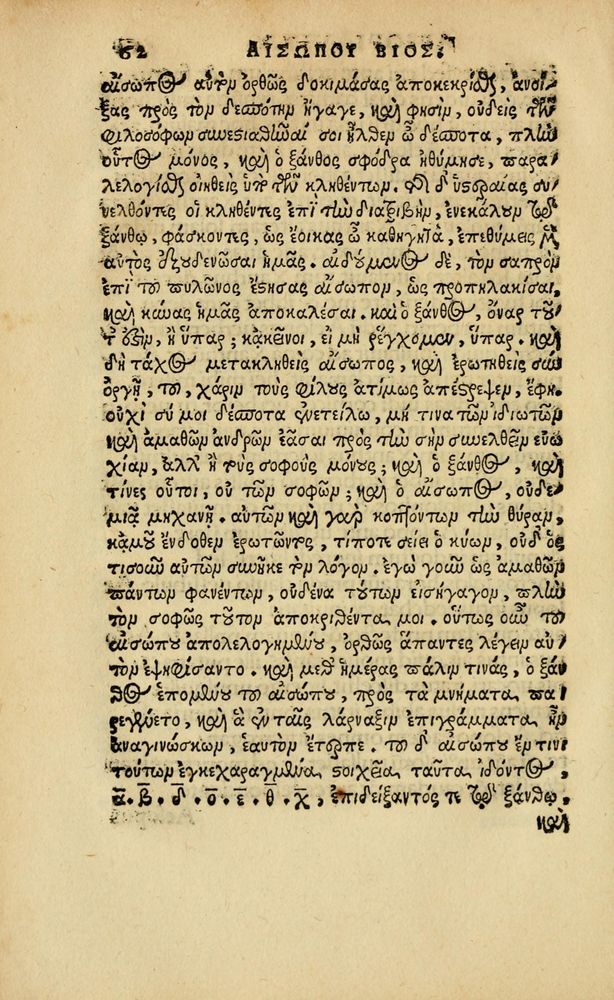 62 ΑΙΣΩΠΟΥ ΒΙΟΣ.
αἴσωπος αὐτὸν ὀρθῶς δοκιμάσας ἀποκεκρίσθαι, ἀνοί
ξας πρὸς τὸν δεσπότην ἤγαγε, καὶ φησὶν, οὐδεὶς τῶν
φιλοσόφων συνεστιαθῆναί σοι ἦλθεν ὦ δέσποτα, πλὴν
οὗτος μόνος, καὶ ὁ ξάνθος σφόδρα ἠθύμησε, παρα
λελογίσθαι οἰηθεὶς ὑπὸ τῶν κληθέντων. τῇ δ' ὑστεραίας συ
νελθόντες οἱ κληθέντες ἐπὶ τὴν διατριβὴν, ἐνεκάλουν τῷ
ξάνθῳ, φάσκοντες, ὡς ἔοικας ὦ καθηγητὰ, ἐπεθύμεις μὲν
αὐτὸς ἐξουδενῶσαι ἡμᾶς. αἰδούμενος δὲ, τὸν σαπρὸν
ἐπὶ τοῦ πυλῶνος ἔστησας αἴσωπον, ὡς προπηλακίσαι,
καὶ κύνας ἡμᾶς ἀποκαλέσαι. καὶ ὁ ξάνθος, ὄναρ τοῦ
τ' ἐστὶν, ἢ ὕπαρ; κἀκεῖνοι, εἰ μὴ ῥέγχομεν, ὕπαρ. καὶ
δὴ τάχος μετακληθεὶς αἴσωπος, καὶ ἐρωτηθεὶς σὺν
ὀργῇ, τοῦ χάριν τοὺς φίλους ἀτίμως ἀπέστρεψεν, ἔφη.
οὐχὶ σύ μοι δέσποτα ἐνετείλω, μή τινα τῶν ἰδιωτῶν
καὶ ἀμαθῶν ἀνδρῶν ἐᾶσαι πρὸς τὴν σὴν συνελθεῖν εὐω
χίαν, ἀλλ' ἢ τοὺς σοφοὺς μόνους; καὶ ὁ ξάνθος, καὶ
τίνες οὗτοι, οὐ τῶν σοφῶν; καὶ ὁ αἴσωπος, οὐδε
μιᾷ μηχανῇ. αὐτῶν καὶ γὰρ κοπτόντων τὴν θύραν,
κἀμοῦ ἔνδοθεν ἐρωτῶντος, τί ποτε σείει ὁ κύων, οὐδ' ὅς
τισοῦν αὐτῶν συνῆκε τὸν λόγον. ἐγὼ γοῦν ὡς ἀμαθῶν
πάντων φανέντων, οὐδένα τούτων εἰσήγαγον, πλὴν
τὸν σοφῶς τοῦτον ἀποκριθέντα μοι. οὕτως οὖν τοῦ
αἰσώπου ἀπολελογημένου, ὀρθῶς ἅπαντες λέγειν αὐ
τὸν ἐψηφίσαντο. καὶ μεθ' ἡμέρας πάλιν τινὰς, ὁ ξάν
θος ἑπομένου τοῦ αἰσώπου, πρὸς τὰ μνήματα πα
ρεγένετο, καὶ ἃ ἐν ταῖς λάρναξιν ἐπιγράμματα ἦν
ἀναγινώσκων, ἑαυτὸν ἔτερπε. τοῦ δ' αἰσώπου ἔν τινι
τούτων ἐγκεχαραγμένα στοιχεῖα ταῦτα ἰδόντος,
α. β. δ. ο. ε. θ. χ, ἐπιδείξαντός τε τῷ ξάνθῳ,
καὶ